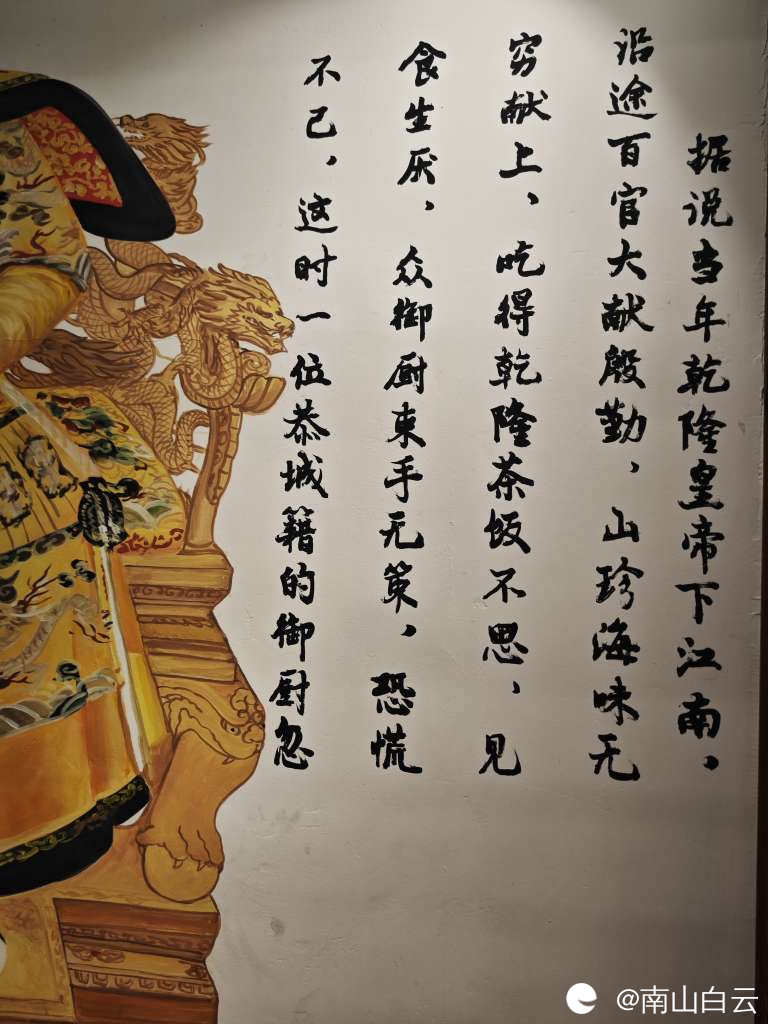 据说当年乾隆皇帝下江南，
沿途百官大献殷勤，山珍海味无
穷献上，吃得乾隆茶饭不思，见
食生厌，众御厨束手无策，恐慌
不已，这时一位恭城籍的御厨忽
@南山白云